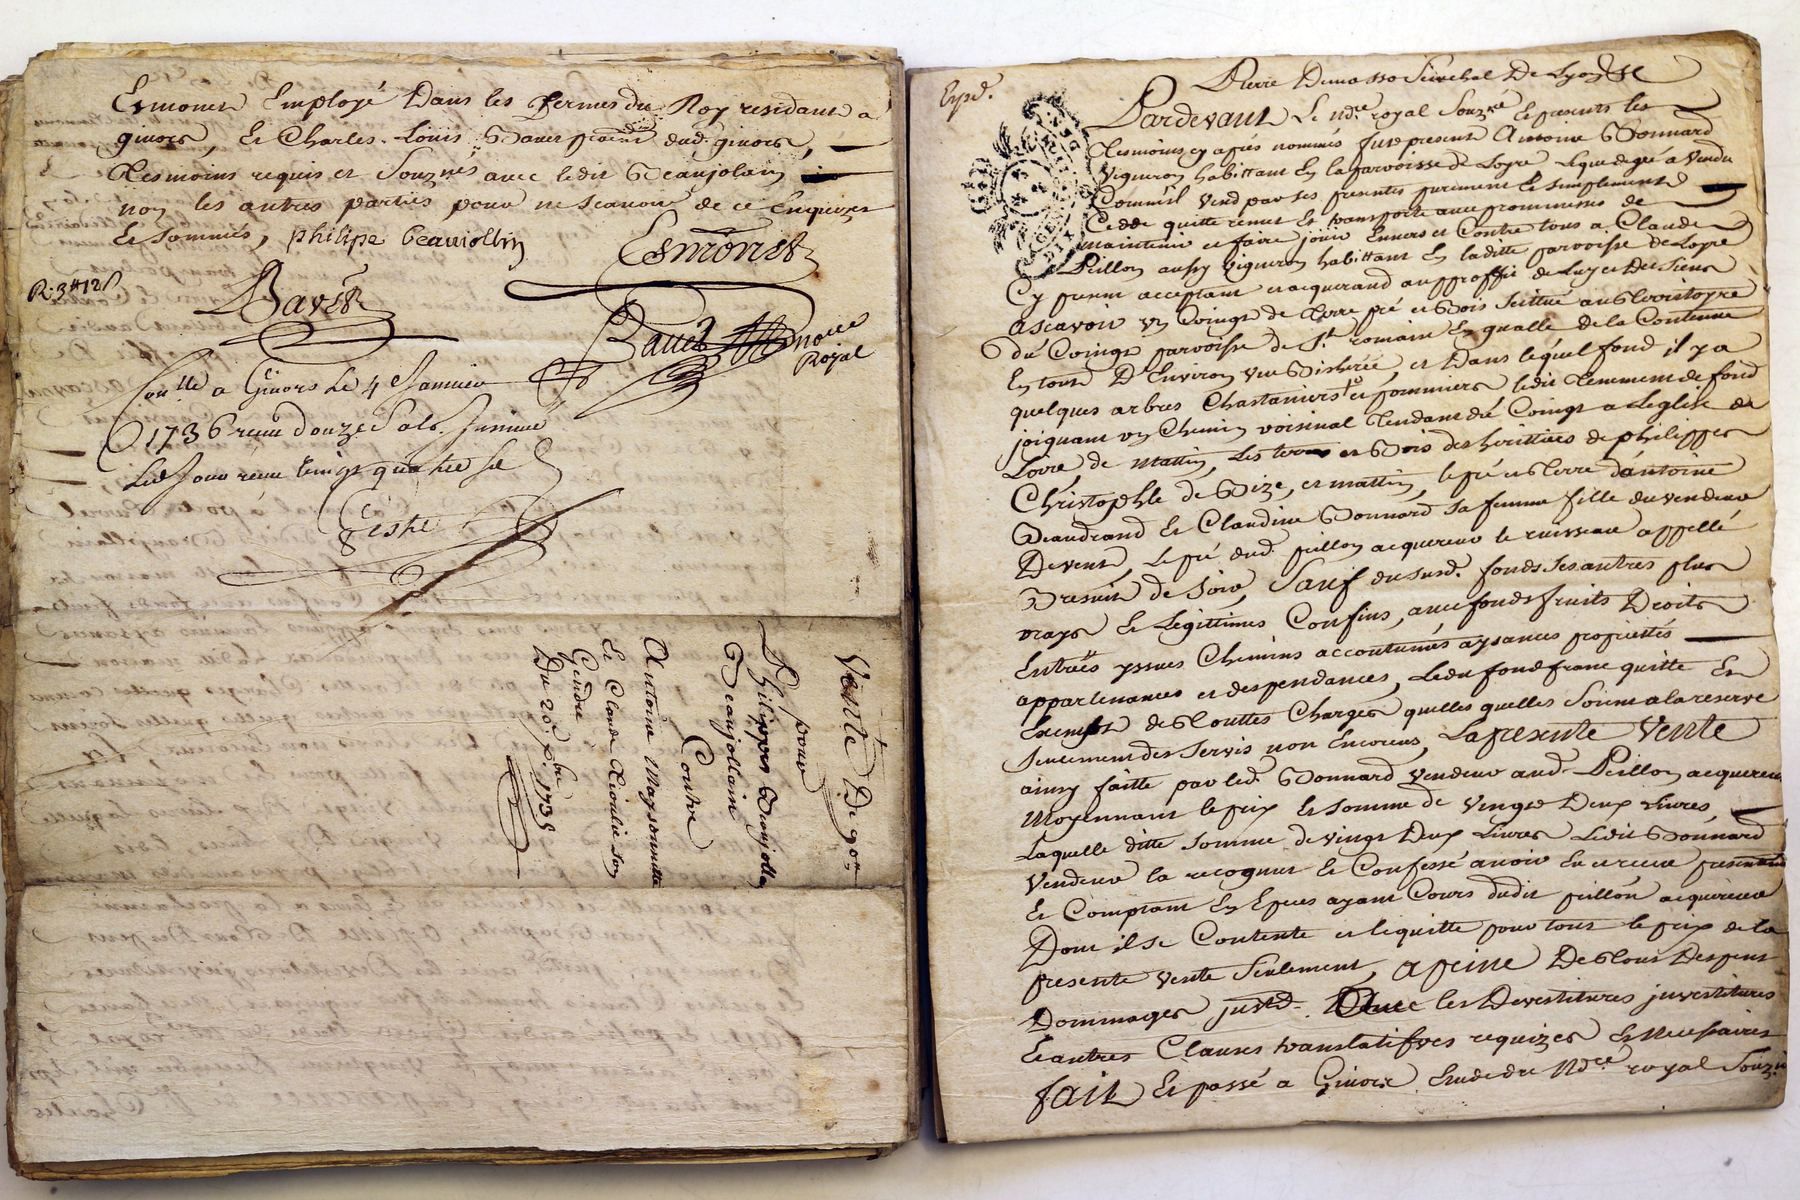 Esmonet Employé Dans les fermes du Roy residant a
givors, Et Charles Louis Bavet dud. givors,
Tesmoins requis et Souznés avec ledit Beaujolain
non les autres parties pour ne scavoir de ce Enquizes
Et sommés, philipe beaujollin Esmonet
R. 3# 12 s
Bavet
Bavet no.re Royal
Con.lle a Givors Le 4 Janvier
1736 reçu douze sols
Led Jour reçu vingt quatre s
Geste
Vente De 90#
pour
Philippes Beaujolla
Beaujollain
Contre
Antoine Maysonnette
Et Claude son
Gendre
Du 20e xbre 1735
Expd.
Pierre Dumas Senechal De Lyon
Pardevant Le no.re royal Souzné Et presents les
Tesmoins cy apres nommés fut present Antoine Bonnard
Vigneron habittant En la parroisse de Loyre Lequel de gré a Vendu
Comm'il Vend par ses presentes purement Et simplement
Cedde quitte remet Et transporte avec promesses de
maintenir et faire jouir Envers et Contre tous a Claude
Pillon aussy Vigneron habittant En laditte parroisse de Loyre
Cy present acceptant et acquerand au proffit de Luy et Des Siens
Ascavoir un Coingt de Terre pré et Bois Scittué au Territoyre
du Coingt parroisse de St. romain En gualle de la Contenue
En tout D'Environ une Bicherée, et Dans lequel fond il y a
quelques arbres Chastaniers et pommiers ledit Tennement de fond
joignant un Chemin voisinal Tendant du Coingt a Leglise de
Loire de Mattin, Les terres et Bois des herittiers de philippes
Christophle de Bize, et mattin, le pré et Terre d'antoine
Beaudrand Et Claudine Bonnard sa femme fille du vendeur
De vent, le pré dud. pillon acquereur le ruisseau appellé
de Soir, Sauf du susd. fonds ses autres plus
vrays Et Legittimes Confins, avec fonds fruits Droits
Entrées yssues Chemins accoutumés aysances proprietés
appartenances et despendances, Led. fond franc quitte Et
Exempt de Touttes Charges quelles quelles Soient a la reserve
seulement des servis non Encourus, La presente Vente
ainsy faitte par led. Bonnard vendeur aud. Pillon acquereur
Moyennant le prix Et Somme de Vingt Deux Livres,
Laquelle ditte Somme de vingt Deux Livres Ledit Bonnard
Vendeur la recognut Et Confessé avoir Eu et receu presentement
Et Comptant En Especes ayant Cours dudit pillon acquereur
Dont il se Contente et l'equitte pour tout le prix de la
presente vente Seulement, a peine De Tous Despens
Dommages jntd. Avec les Devestitures jnvestitures
Et autres Clauses translatifves requizes Et Necessaires
fait Et passé a Givors Etude du No.re royal Souzné